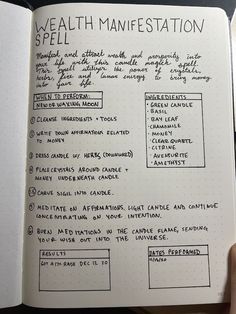 WEALTH MANIFESTATION
SPELL
Manifest and attract wealth and prosperity into
your life with this candle magick spell.
This spell utilizes the power of crystals,
herbs, fire and lunar energy to bring money
into your life.
WHEN TO PERFORM:
NEW OR WAXING MOON
① CLEANSE INGREDIENTS + TOOLS
② WRITE DOWN AFFIRMATIONS RELATED
TO MONEY
③ DRESS CANDLE W/ HERBS, (DOWNWARD)
④ PLACE CRYSTALS AROUND CANDLE +
MONEY UNDERNEATH CANDLE
CARVE SIGIL INTO CANDLE.
INGREDIENTS
· GREEN CANDLE
· BASIL
· BAY LEAF
· CHAMOMILE
· MONEY
· CLEAR QUARTZ
· CITRINE
· AVENTURITE
· AMETHYST
⑤ MEDITATE ON AFFIRMATIONS, LIGHT CANDLE AND CONTINUE
CONCENTRATING ON YOUR INTENTION.
⑥ BURN MEDITATIONS IN THE CANDLE FLAME, SENDING
YOUR WISH OUT INTO THE UNIVERSE.
RESULTS
GOT A RAISE DEC 12
DATES PERFORMED